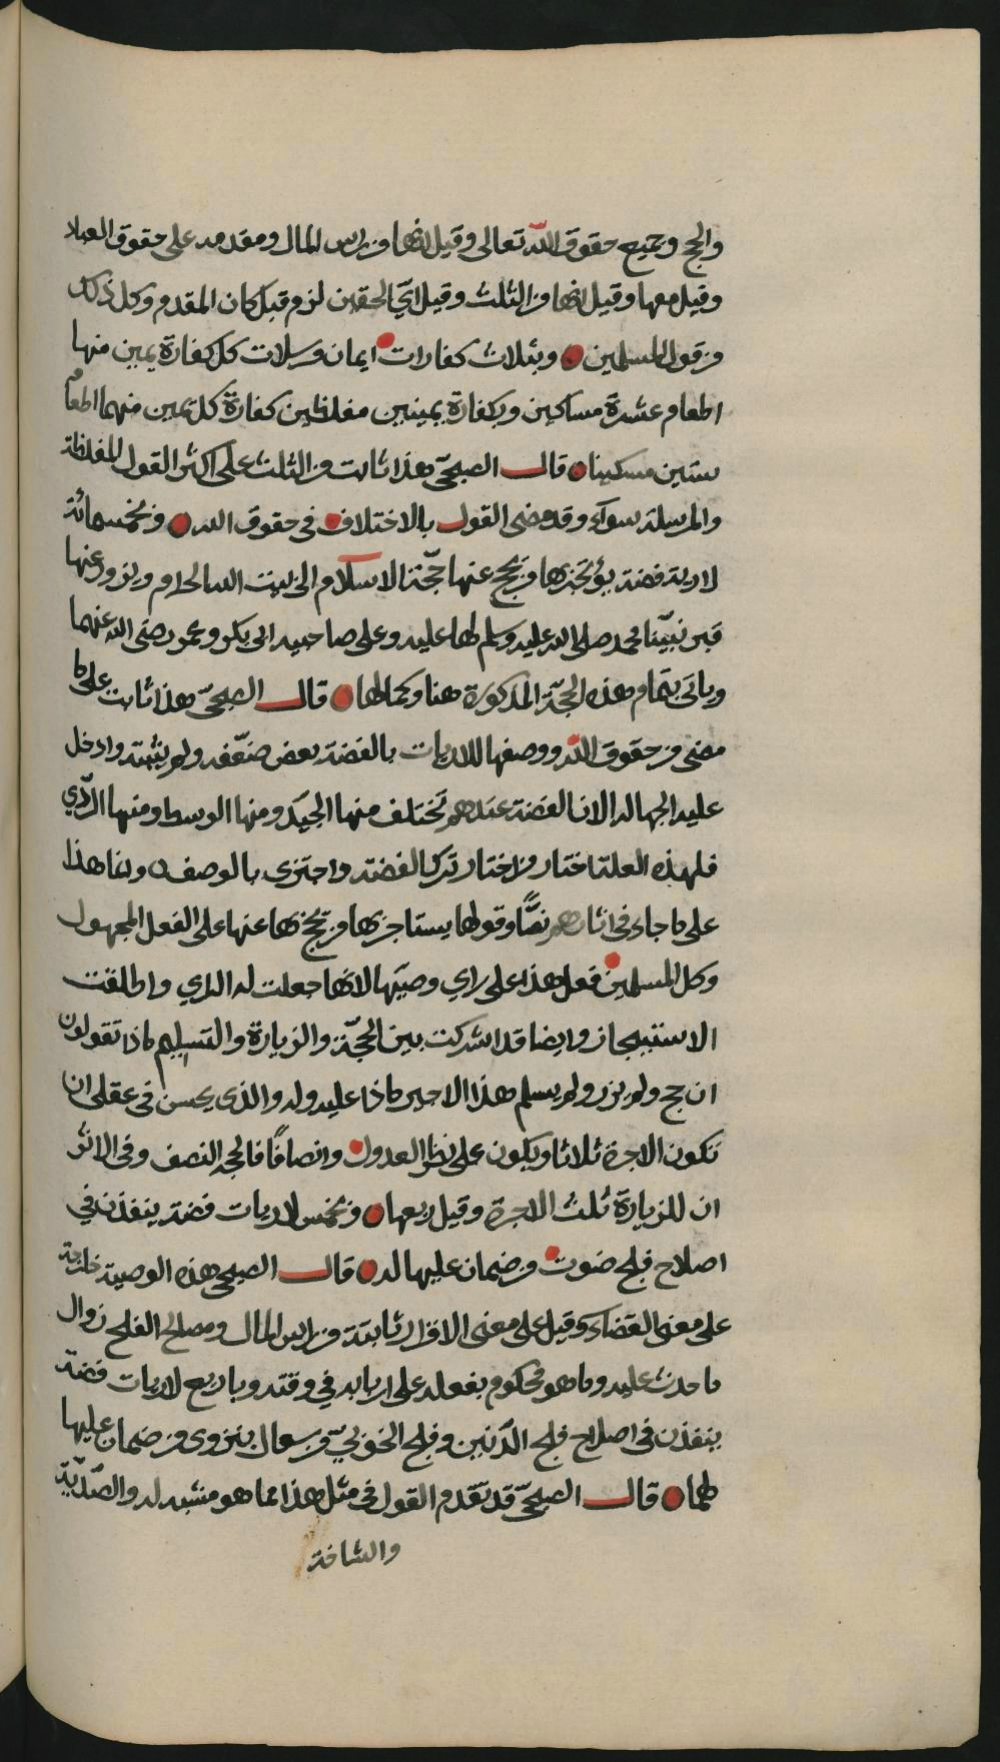 والحج وجميع حقوق الله تعالى وقيل انها من راس المال ومقدمه على حقوق العباد
وقيل معها وقيل انها من الثلث وقيل اي الحقين لزم قبل كان المقدم وكل ذلك
من قول المسلمين وبثلاث كفارات ايمان مرسلات كل كفارة يمين منها
اطعام عشرة مساكين وبكفارة يمينين مغلظين كفارة كل يمين منهما اطعام
ستين مسكينا قال الصبحي هذا ثابت من الثلث على اكثر القول المغلظة
والمرسلة سواء وقد مضى القول بالاختلاف في حقوق الله وبخمسمائة
لارية فضة يؤتجر بها من يحج عنها حجة الاسلام الى بيت الله الحرام ويزور عنها
قبر نبينا محمد صلى الله عليه وسلم لها عليه وعلى صاحبيه ابي بكر وعمر رضي الله عنهما
وياتي بتمام هذه الحجة المذكورة هنا وكمالها قال الصبحي هذا ثابت على ما
مضى من حقوق الله ووصفها للاريات بالفضة بعض ضعفه ولم يثبته وادخل
عليه الجهالة لان الفضة عندهم تختلف منها الجيد ومنها الوسط ومنها الردي
فلهذه العلة اختار من اختار ترك الفضة واجتزى بالوصف وانما هذا
على ما جاء في اثارهم نصًّا وقولها يستاجر بها من يحج بها عنها على الفعل المجهول
وكل المسلمين فعل هذا على راي وصيها لانها جعلت له الراي واطلقت
الاستيجاز وايضا قد اشركت بين الحجة والزيارة والتسليم ماذا تقولون
ان حج ولم يزر ولم يسلم هذا الاجير ماذا عليه وله والذي يحسن في عقلي ان
تكون الاجرة ثلاثا ويكون على نظر العدول وانصافًا فالحجة النصف وفي الاثر
ان للزيارة ثلث الاجرة وقيل ربعها وبخمس لاريات فضة ينفذن في
اصلاح فلج ضوت من ضمان عليها له قال الصبحي هذه الوصية خارجة
على معنى القضاء وقيل على معنى الاقرار ثابتة من راس المال ومصالح الفلج زوال
ما حدث عليه وما هو محكوم بفعله على اربابه في وقته وباربع لاريات فضة
ينفذن في اصلاح فلج الدنين وفلج الخوبي من سعال بنزوى من ضمان عليها
لهما قال الصبحي قد تقدم القول في مثل هذا مما هو مشبه له والصدية
والشافة